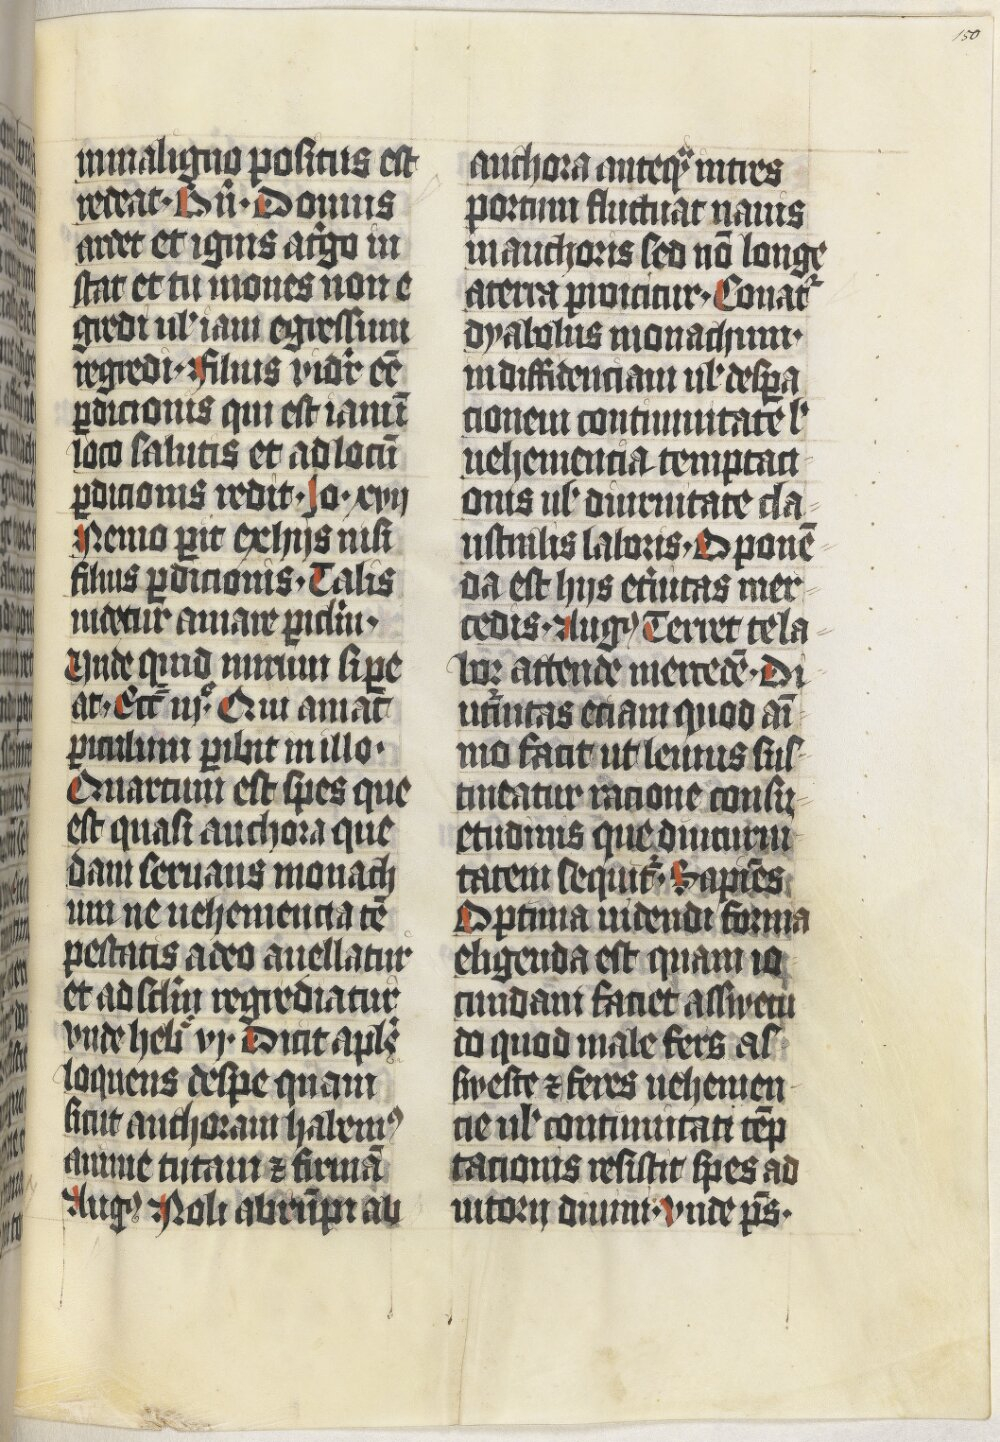 150
inmaligno positus est
redeat. Sn̄. Domus
ardet et ignis at̓go in
stat et tu mones non e
gredi ul̓ iam egressum
regredi. Filius vidr̄ ee̅
ꝑdicionis qui est iam ī
loco salutis et adlocū
ꝑdicionis redit. Jo. xvij
Nemo ꝑit exhijs nisi
filius ꝑdicionis. Talis
uidetur amare ꝑiclm̄.
Unde quid mirum si ꝑe
at. Ecc̄ᶜ iijͦ. Qui amat
ꝑiculum ꝑibit in illo.
Quartum est spes que
est quasi anchora que
dam seruans monach
um ne uehemencia te̅
pestatis adeo auellatur
et ad sclm̄ regrediatur
vnde heb̓ vj. Dicit apl̓s
loquens despe quam
sicut anchoram habemꝰ
anime tutam ⁊ firmā
Augꝰ Noli abrūpi ab
anchora anteqͣ intres
portum fluctuat nauis
in anchoris sed nō longe
aterra proicitur. Conat᷑
dyabolus monachum.
indiffidenciam ul̓ despa
cionem continuitate l̓
uehemencia temptaci-
onis ul̓ diurnitate cla-
ustralis laboris. Oponē-
da est hijs et̓nitas mer-
cedis. Augꝰ Terret te la-
bor attende mercedē. Di-
ut̓nitas eciam quod aī
mo facit ut leuius sus-
tineatur racione consu-
etudinis que diuturni-
tatem sequit᷑. Sapiēs
Optima uidendi forma
eligenda est quam io
cundam faciet asswetu
do quod male fers as-
sweste ⁊ feres uehemen-
cie ul̓ continuitati tēp
tacionis resistit spes ad
iutorij diuini. vnde ps̄.